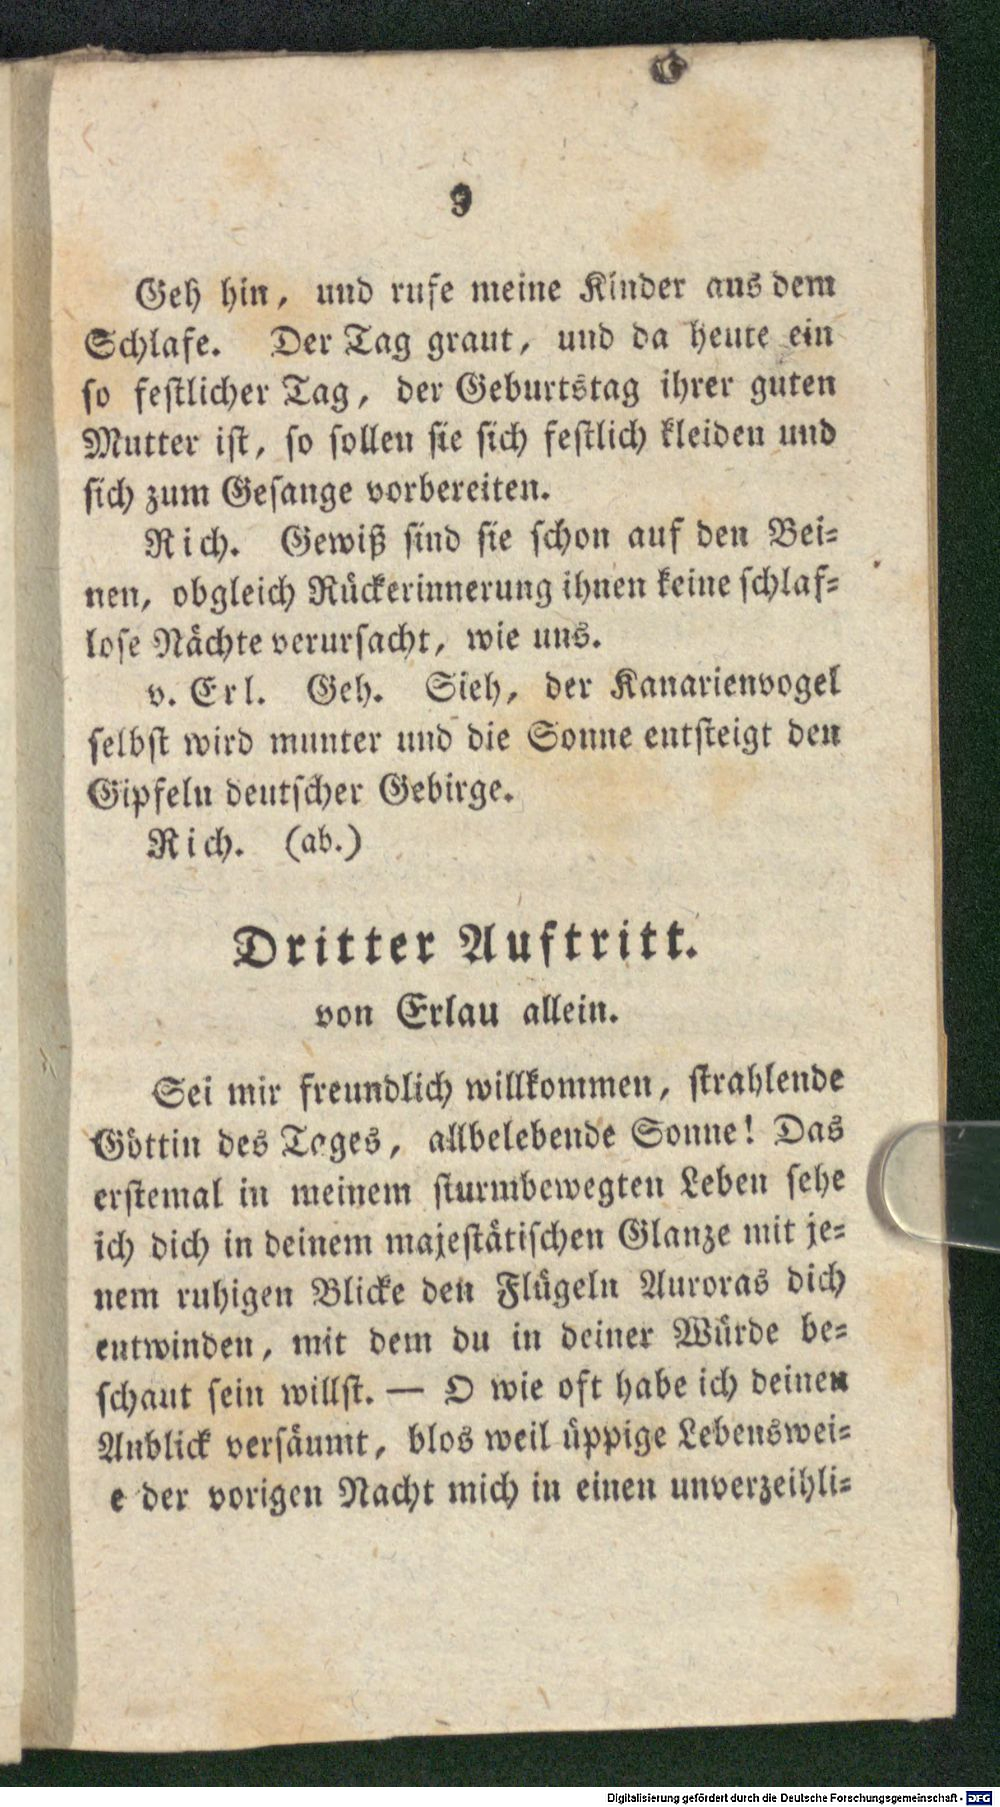 9
Geh hin, und rufe meine Kinder aus dem
Schlafe. Der Tag graut, und da heute ein
so festlicher Tag, der Geburtstag ihrer guten
Mutter ist, so sollen sie sich festlich kleiden und
sich zum Gesange vorbereiten.
Rich. Gewiß sind sie schon auf den Bei-
nen, obgleich Rückerinnerung ihnen keine schlaf-
lose Nächte verursacht, wie uns.
v. Erl. Geh. Sieh, der Kanarienvogel
selbst wird munter und die Sonne entsteigt den
Gipfeln deutscher Gebirge.
Rich. (ab.)
Dritter Auftritt.
von Erlau allein.
Sei mir freundlich willkommen, strahlende
Göttin des Tages, allbelebende Sonne! Das
erstemal in meinem sturmbewegten Leben sehe
ich dich in deinem majestätischen Glanze mit je-
nem ruhigen Blicke den Flügeln Auroras dich
entwinden, mit dem du in deiner Würde be-
schaut sein willst. — O wie oft habe ich deinen
Anblick versäumt, blos weil üppige Lebenswei-
e der vorigen Nacht mich in einen unverzeihli-
Digitalisierung gefördert durch die Deutsche Forschungsgemeinschaft - DFG